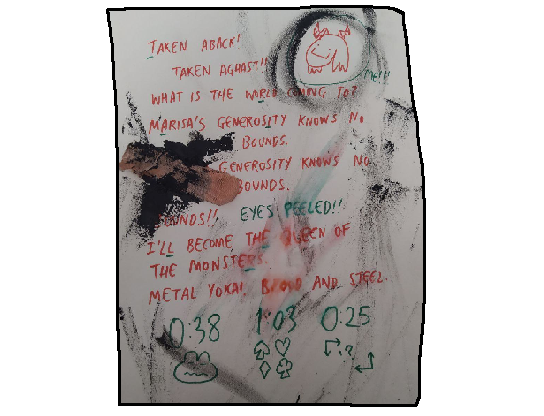 TAKEN ABACK!
TAKEN AGHAST!!
ME!!!
WHAT IS THE WORLD COMING TO?
MARISA'S GENEROSITY KNOWS NO
BOUNDS.
GENEROSITY KNOWS NO
BOUNDS.
EYES PEELED!!
I'LL BECOME THE QUEEN OF
THE MONSTERS.
METAL YOKAI BLOOD AND STEEL.
0:38 1:03 0:25